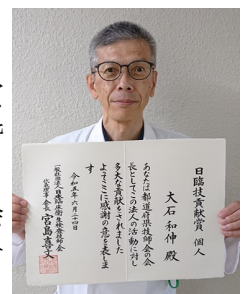 日臨技貢献賞 個人
大石和伸 殿
あなたは都道府県技師会の会
長としてこの法人の活動に対し
多大な貢献をされました
よってここに感謝の意を表しま
す
令和五年六月二十四日
一般社団法人日本臨床衛生検査技師会
代表理事会長 宮島喜文